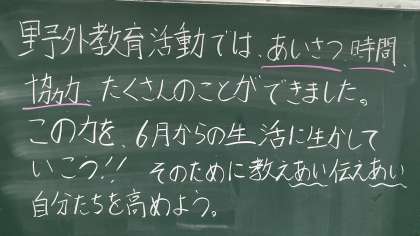 野外教育活動では、あいさつ、時間、
協力、たくさんのことができました。
この力を、6月からの生活に生かして
いこう!! そのために教えあい伝えあい
自分たちを高めよう。